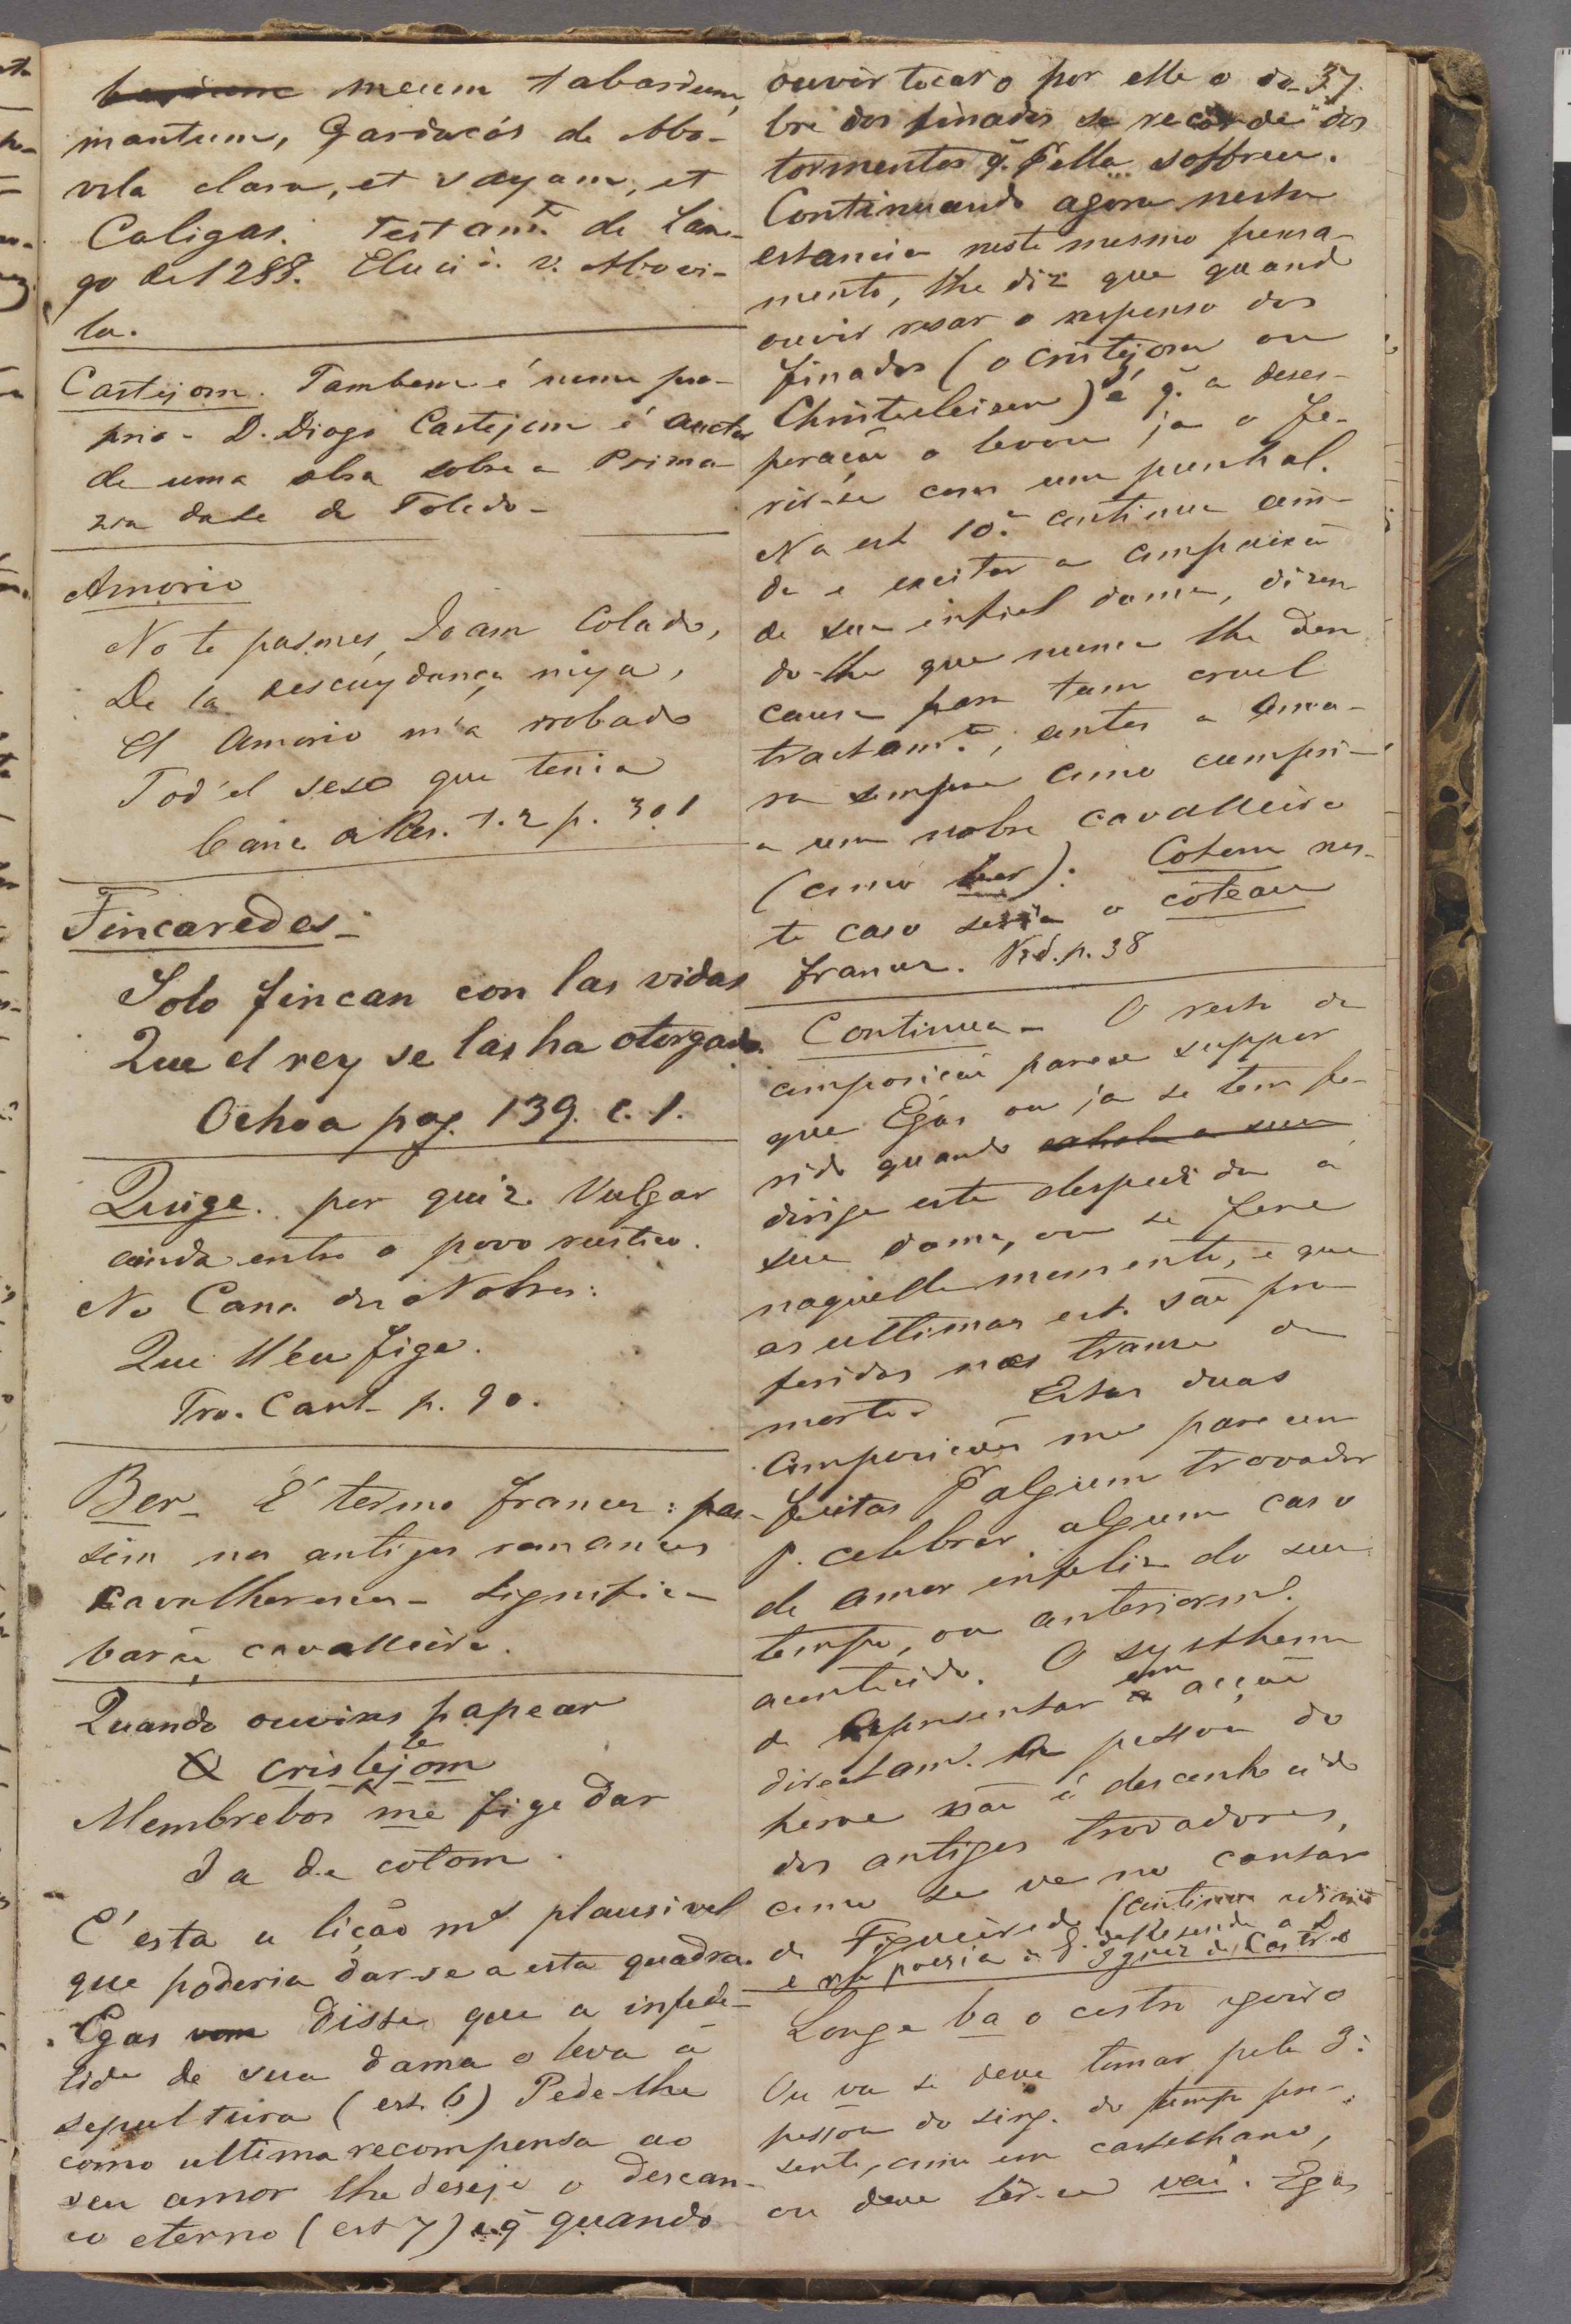 meum tabardum,
mantum, Gardacós de Mo-
vila clara, et sayam, et
Caligas. Testamt. de Lame-
go de 1288. Elucid. v. Move-
la.
Castejom. Tambem é nome pro-
prio - D. Diogo Castejom é auctor
de uma obra sobre a Prima-
zia da Se de Toledo -
Amorio
No te pasmes, Joam Colado,
De la descuydança miya,
El Amorio m'a rrobado
Tod'el seso que tenia
Canc. de Res. t. 2 p. 301
Fincaredes -
Solo fincan con las vidas
Que el rey se las ha otorgado.
Ochoa pag. 139. c. 1.
Quige. por quiz. Vulgar
ainda entre o povo rustico.
No Canc. dos Nobres:
Que ll'eu fige.
Tro. Cant. p. 90.
Ber - É termo francez: pas-
sim nos antigos romances
cavalherescos - Significa
barão, cavalleiro.
Quando ouvires papear
O cristejom
te
Membrebos me fige dar
Ja de cotom.
É esta a lição ms plausivel
que poderia dar-se a esta quadra.
Egas disse que a infide-
lide de sua dama o leva á
sepultura (est. 6) Pede-lhe
como ultima recompensa ao
seu amor lhe deseje o descan-
ço eterno (est 7) e q̃ quando
37.
ouvir tocar o por elle o do-
bre dos finados se recorde dos
tormentos q̃. p̃ ella soffreu.
Continuando agora nesta
estancia neste mesmo pensa-
mento, lhe diz que quando
ouvir resar o responso dos
finados (o cristejom ou
Christeleison) é q̃ a deses-
peração o levou ja a fe-
rir-se com um punhal.
Na est. 10.ª continua ain-
da a excitar a compaixão
de sua infiel dama, dizen
do-lhe que nunca lhe deu
causa para tam cruel
tractamt.º, antes a ama-
ra sempre como cumpri-
a um nobre cavalleiro
(como ber): Cotom nes-
te caso seria o coteau
francez. Vid. p. 38
Continua - O resto da
composição parece suppor
que Egas ou ja se tem fe-
rido quando
dirige esta despedida a
sua dama, ou se fere
naquelle momento, e que
as ultimas est. são pro-
feridas nos transe da
morte. Estas duas
composições me parecem
feitas pr algum trovador
p. celebrar algum caso
de amor infeliz do seu
tempo, ou anteriormt.
acontecido. O systhema
de representar em acção
directamt. a pessoa do
heroe não é desconhecido
dos antigos trovadores,
como se ve na cansão
de Figueiredo (continua
e na poesia de G. de Resende a D. Ignez de Castro
Longe ba o castro goiro
Ou va se deve tomar pela 3.ª
pessoa do sing. do tempo pre-
sente, como em castelhano,
ou deve ler-se vai. Egas